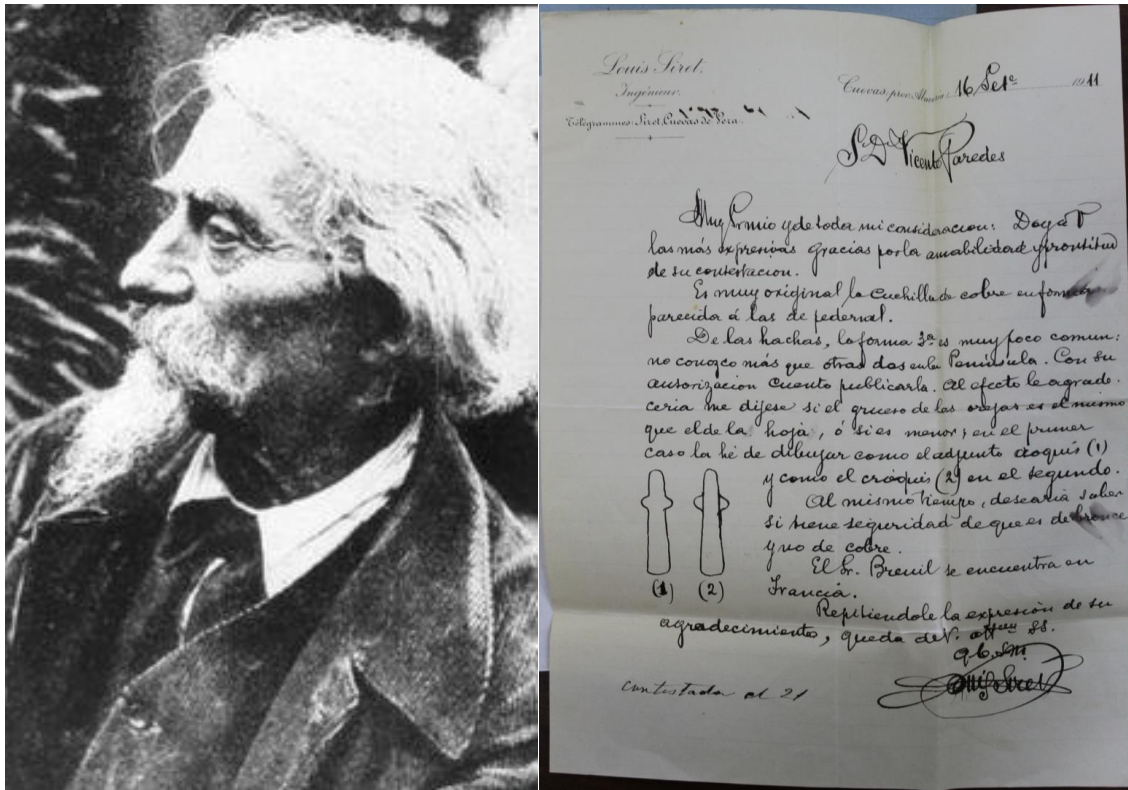 Louis Siret.
Ingénieur.
Télégrammes: Siret, Cuevas de Vera.
Cuevas, prov. Almeria, 16 Sete 1911
S. D. Vicente Paredes
Muy Sr mio y de toda mi consideracion: Doy a V
las más expresivas gracias por la amabilidad y prontitud
de su contestacion.
Es muy original la cuchilla de cobre en forma
parecida á las de pedernal.
De las hachas, la forma 3ª es muy poco comun:
no conozco más que otras dos en la Peninsula. Con su
autorizacion cuento publicarla. Al efecto le agrade-
ceria me dijese si el grueso de las orejas es el mismo
que el de la hoja, ó si es menor; en el primer
caso la hé de dibujar como el adjunto croquis (1)
y como el croquis (2) en el segundo.
Al mismo tiempo, desearia saber
si tiene seguridad de que es de bronce
y no de cobre.
El Sr. Breuil se encuentra en
Francia.
(1) (2)
Repitiendole la expresión de su
agradecimiento, queda de V. SS.
q. b. s. m.
Luis Siret
contestada el 21